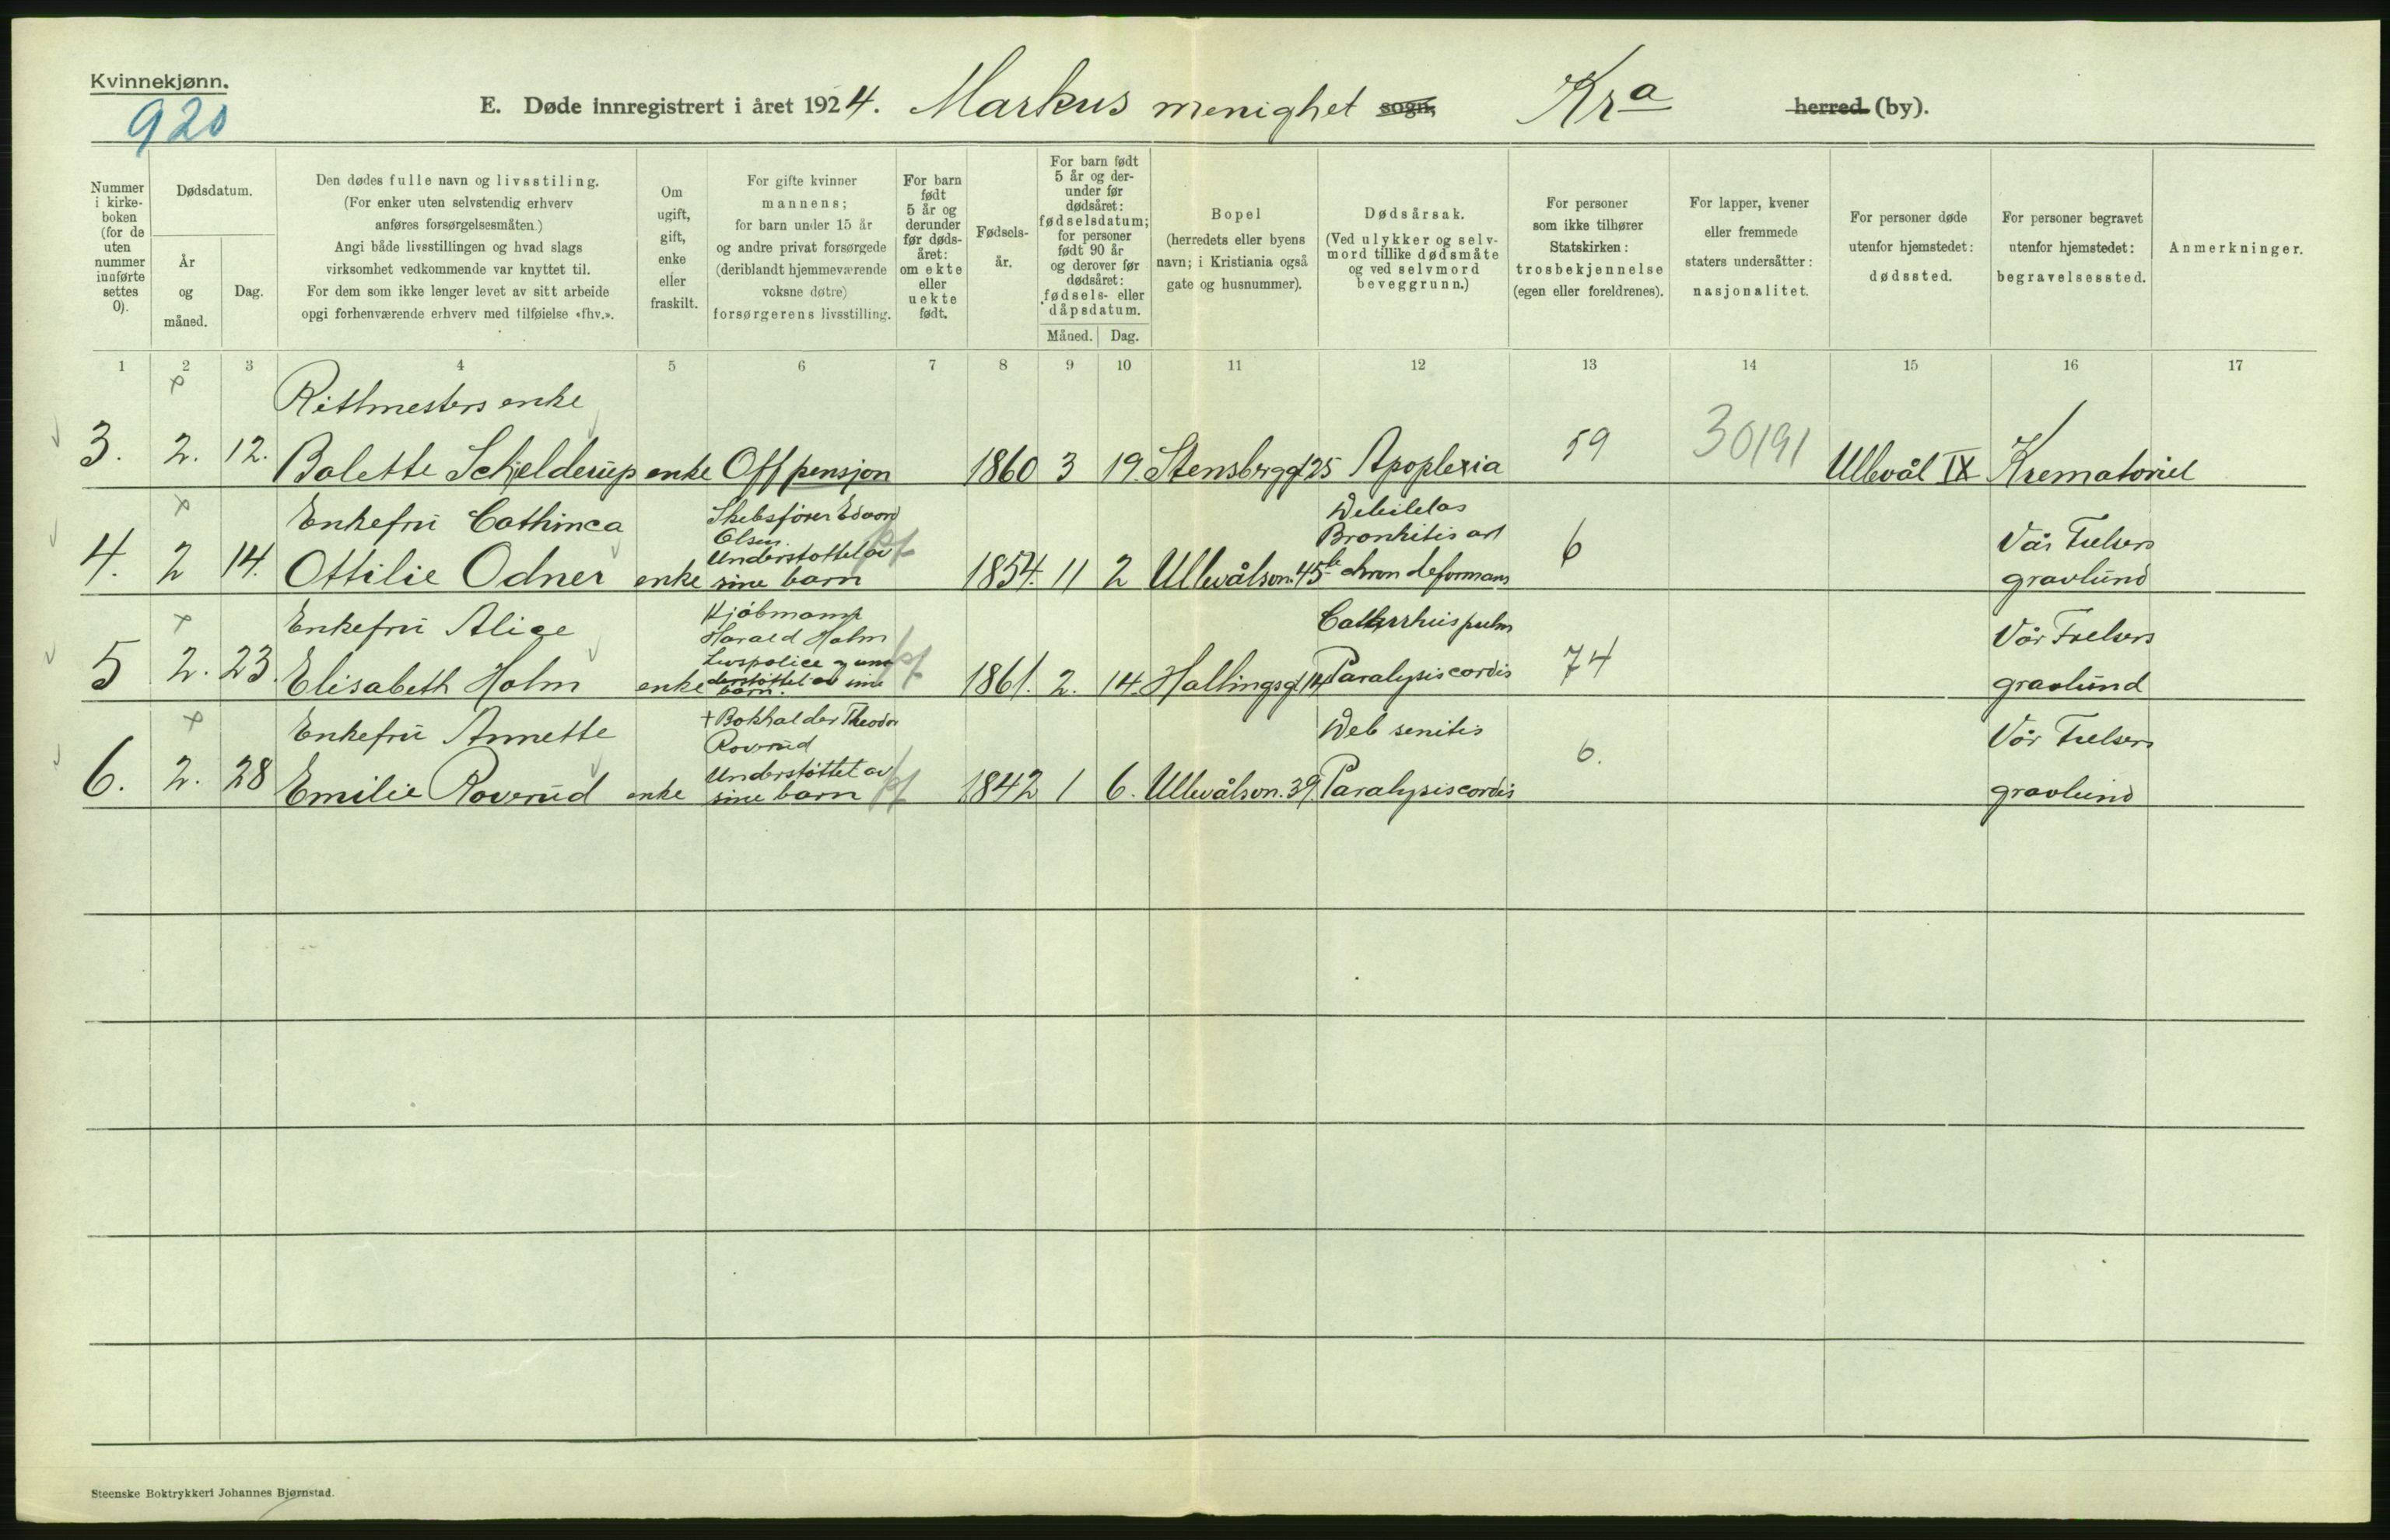 Kvinnekjønn.
920
E. Døde innregistrert i året 1924. Markus menighet sogn, Kra herred (by).
Nummer i kirke-boken (for de uten nummer innførte settes 0).
Dødsdatum.
År og måned.
Dag.
Den dødes fulle navn og livsstiling.
(For enker uten selvstendig erhverv
anføres forsørgelsesmåten.)
Angi både livsstillingen og hvad slags
virksomhet vedkommende var knyttet til.
For dem som ikke lenger levet av sitt arbeide
opgi forhenværende erhverv med tilføielse «fhv.».
Om ugift, gift, enke eller fraskilt.
For gifte kvinner
mannens;
for barn under 15 år
og andre privat forsørgede
(deriblandt hjemmeværende
voksne døtre)
forsørgerens livsstilling.
For barn født 5 år og derunder før døds-året: om ekte eller uekte født.
Fødsels-år.
For barn født
5 år og der-
under før
dødsåret:
fødselsdatum;
for personer
født 90 år
og derover før
dødsåret:
fødsels- eller
dåpsdatum.
Måned. Dag.
Bopel
(herredets eller byens
navn; i Kristiania også
gate og husnummer).
Dødsårsak.
(Ved ulykker og selv-
mord tillike dødsmåte
og ved selvmord
beveggrunn.)
For personer
som ikke tilhører
Statskirken:
trosbekjennelse
(egen eller foreldrenes).
For lapper, kvener
eller fremmede
staters undersåtter:
nasjonalitet.
For personer døde
utenfor hjemstedet:
dødssted.
For personer begravet
utenfor hjemstedet:
begravelsessted.
Anmerkninger.
1 2 3 4 5 6 7 8 9 10 11 12 13 14 15 16 17
Rittmesters enke
3. 2. 12. Bolette Schjelderup enke Off pensjon 1860 3 19. Stensbergg 25 Apoplexia 59 30191 Ullevål IX Krematoriet
Enkefru Cathinca
Ottilie Odner
4. 2 14. enke
Skibsfører Edvard
Olsen.
Understøttet av
sine barn
1854. 11 2 Ullevålsvn. 45
Debilitas
Bronkitis art
chron deformans
6
Vår Frelsers
gravlund
Enkefru Alice
Elisabeth Holm
5 2. 23. enke
Kjøbmann
Harald Holm
Livspolice og un
derstøttet av sine
barn.
1861. 2. 14. Hallingsg. 14
Catarrhus pulm
Paralysis cordis
74
Vår Frelsers
gravlund
Enkefru Annette
Emilie Roverud
6. 2. 28 enke
+ Bokholder Theodor
Roverud
Understøttet av
sine barn
1842 1 6. Ullevålsvn. 39.
Deb senilis
Paralysis cordis
6.
Vår Frelsers
gravlund
Steenske Boktrykkeri Johannes Bjørnstad.